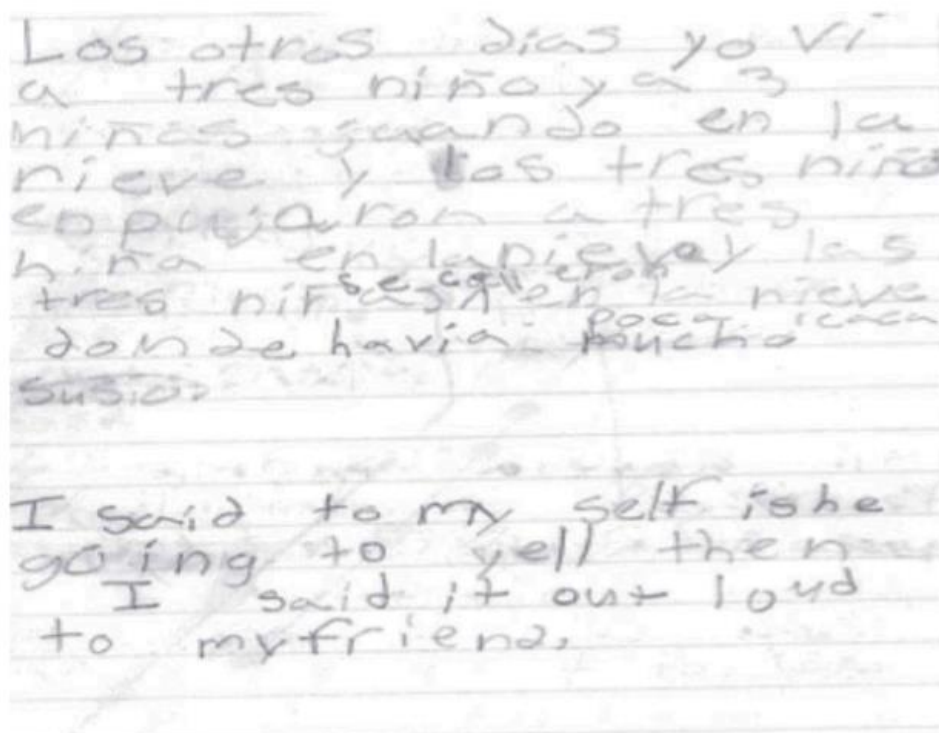 Los otros dias yo vi
a tres niño y a 3
niñas juando en la
nieve y Los tres niño
enpujaron a tres
niña en la nieve y las
tres niñas se calleron en la nieve
donde havia poca caca
susio.
I said to my self is he
going to yell then
I said it out loud
to my friend.